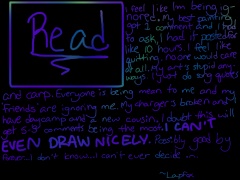 Read
I feel like Im being ig-
nored. My best painting
got 1 comment and I had
to ask. I had it posted for
like 10 hours. I feel like
quitting, no one would care
at all. My art's stupid any-
ways. I just do song quotes
and carp. Everyone is being mean to me and my
'friends' are ignoring me. My charger's broken and I
have daycamp and a new cousin, I doubt this will
get 5-8 comments being the most. I CAN'T
EVEN DRAW NICELY. Possibly good bye
forever. I don't know. I can't ever decide...